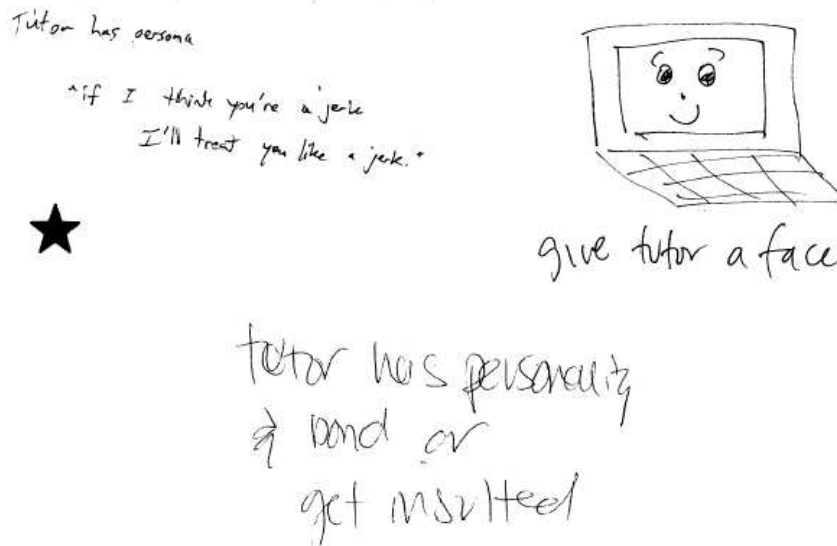 Tutor has persona
"if I think you're a jerk
I'll treat you like a jerk."
give tutor a face
tutor has personality
& bond or
get insulted